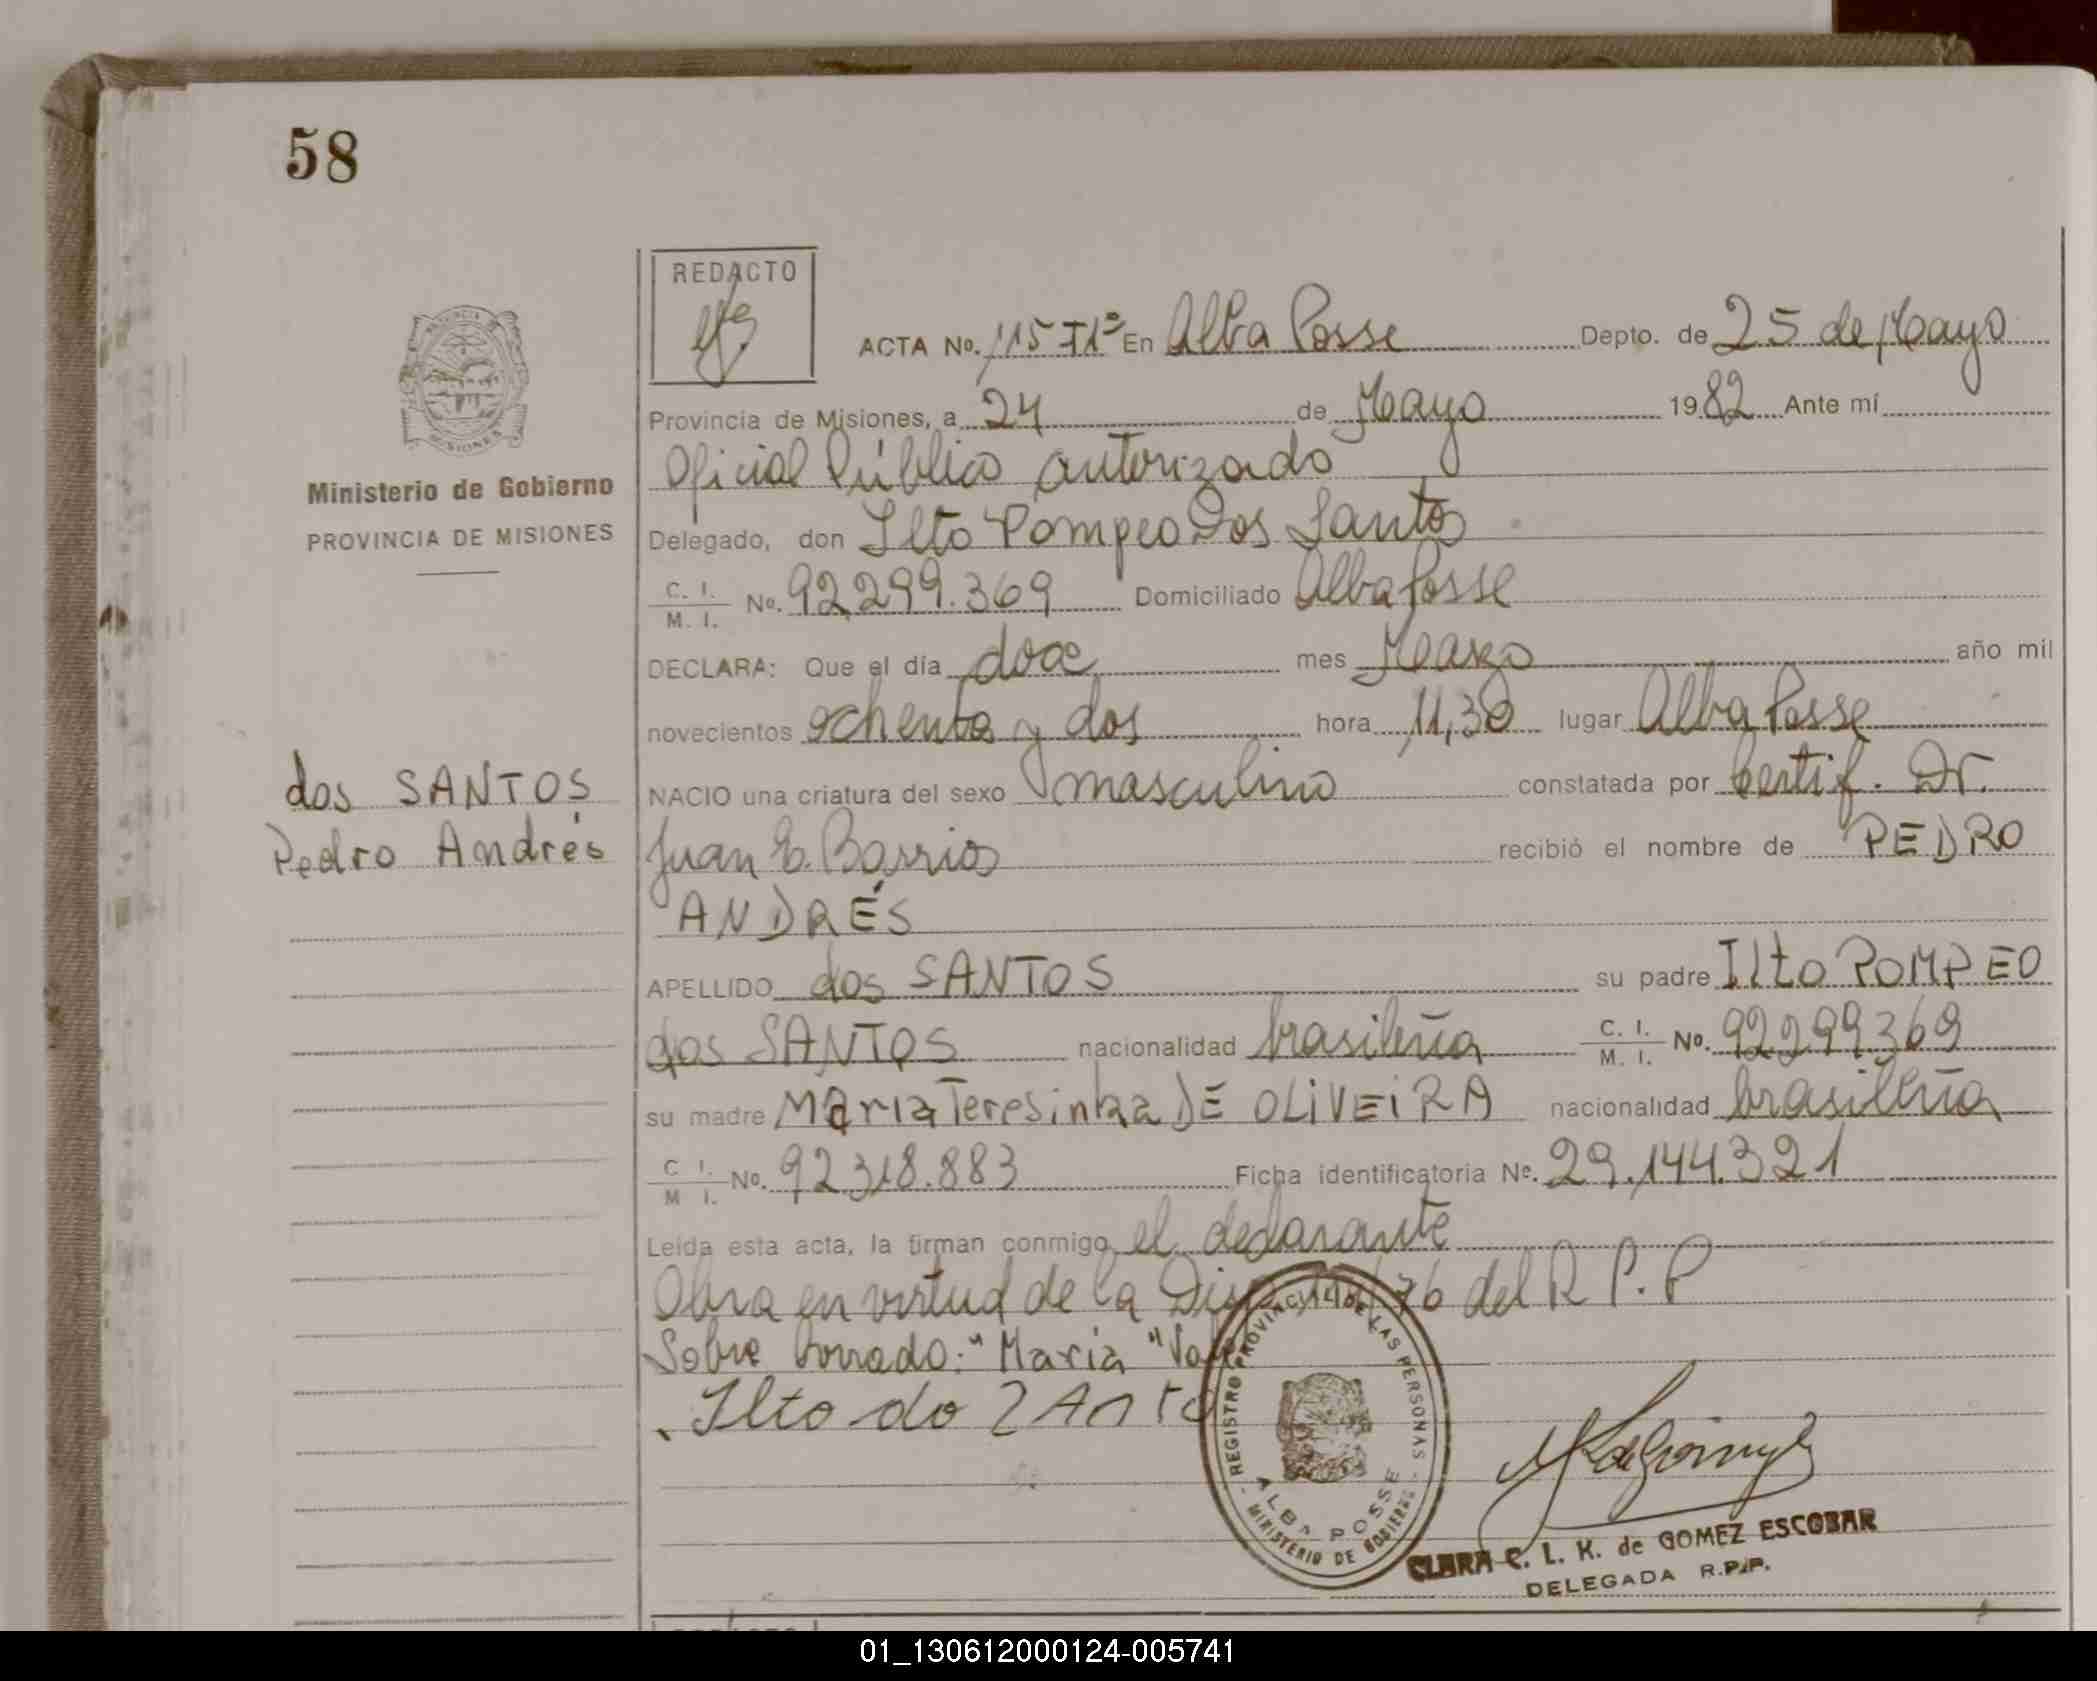 58
REDACTO
ACTA No. 115 TIº En Alba Posse Depto. de 25 de Mayo
Provincia de Misiones, a 24 de Mayo 1982 Ante mí
Oficial Público autorizado
Delegado, don Ilto Pompeo Dos Santos
C. I. / M. I. No. 92,299.369 Domiciliado Alba Posse
DECLARA: Que el día doce mes Marzo año mil
novecientos ochenta y dos hora 11,30 lugar Alba Posse
NACIO una criatura del sexo masculino constatada por Certif. Dr.
Juan E. Barrios recibió el nombre de PEDRO
ANDRÉS
APELLIDO dos SANTOS su padre Ilto POMPEO
dos SANTOS nacionalidad brasileña C. I. / M. I. No. 92299369
su madre Maria Teresinha DE OLIVEIRA nacionalidad brasileña
C I. / M I. No. 92318.883 Ficha identificatoria No. 29.144.321
Leida esta acta, la firman conmigo el declarante
Obra en virtud de la Disp. /76 del R P. P
Sobre borrado: "Maria" Vale
Ilto do SAnto
PROVINCIA DE MISIONES
Ministerio de Gobierno
PROVINCIA DE MISIONES
dos SANTOS
Pedro Andrés
REGISTRO PROVINCIAL DE LAS PERSONAS
ALBA POSSE
MINISTERIO DE GOBIERNO
CLARA C. L. K. de GOMEZ ESCOBAR
DELEGADA R.P.P.
01_130612000124-005741